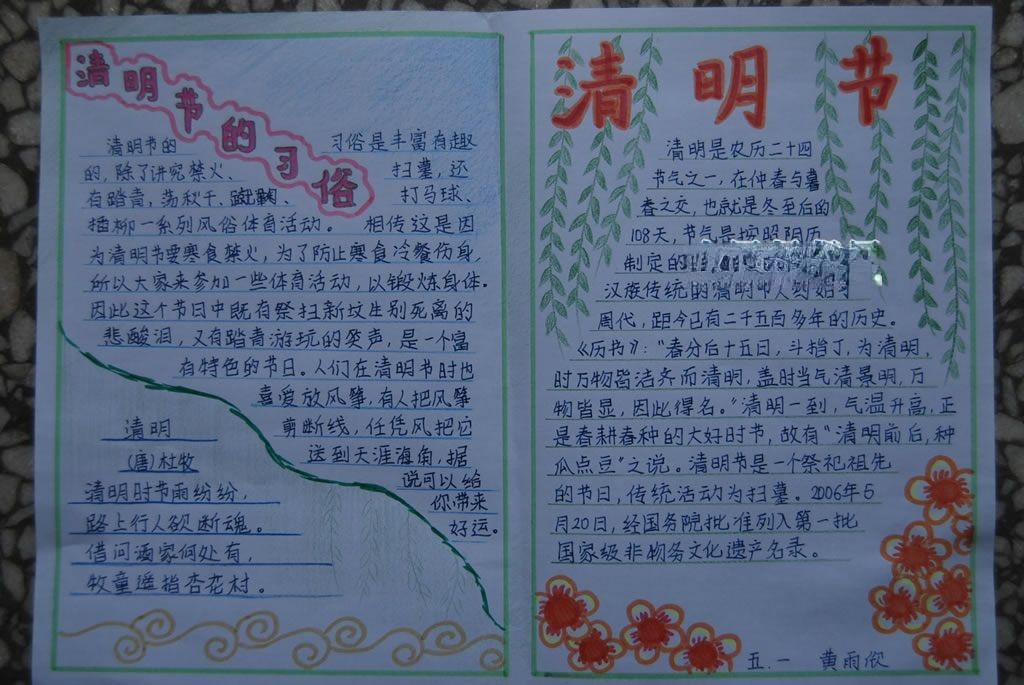 清明节的习俗
清明节的 习俗是丰富有趣
的,除了讲究禁火、 扫墓,还
有踏青,荡秋千、蹴鞠、 打马球、
插柳一系列风俗体育活动。 相传这是因
为清明节要寒食禁火,为了防止寒食冷餐伤身,
所以大家来参加一些体育活动,以锻炼身体。
因此这个节日中既有祭扫新坟生别死离的
悲酸泪,又有踏青游玩的笑声,是一个富
有特色的节日。人们在清明节时也
喜爱放风筝,有人把风筝
剪断线,任凭风把它
送到天涯海角,据
说可以给
你带来
好运。
清明
(唐)杜牧
清明时节雨纷纷,
路上行人欲断魂。
借问酒家何处有,
牧童遥指杏花村。
清明节
清明是农历二十四
节气之一,在仲春与暮
春之交,也就是冬至后的
108天,节气是按照阴历
制定的
汉族传统的清明节
周代,距今已有二千五百多年的历史。
《历书》:“春分后十五日,斗指丁,为清明,
时万物皆洁齐而清明,盖时当气清景明,万
物皆显,因此得名。”清明一到,气温升高,正
是春耕春种的大好时节,故有“清明前后,种
瓜点豆”之说。清明节是一个祭祀祖先
的节日,传统活动为扫墓。2006年5
月20日,经国务院批准列入第一批
国家级非物务文化遗产名录。
五.一 黄雨欣